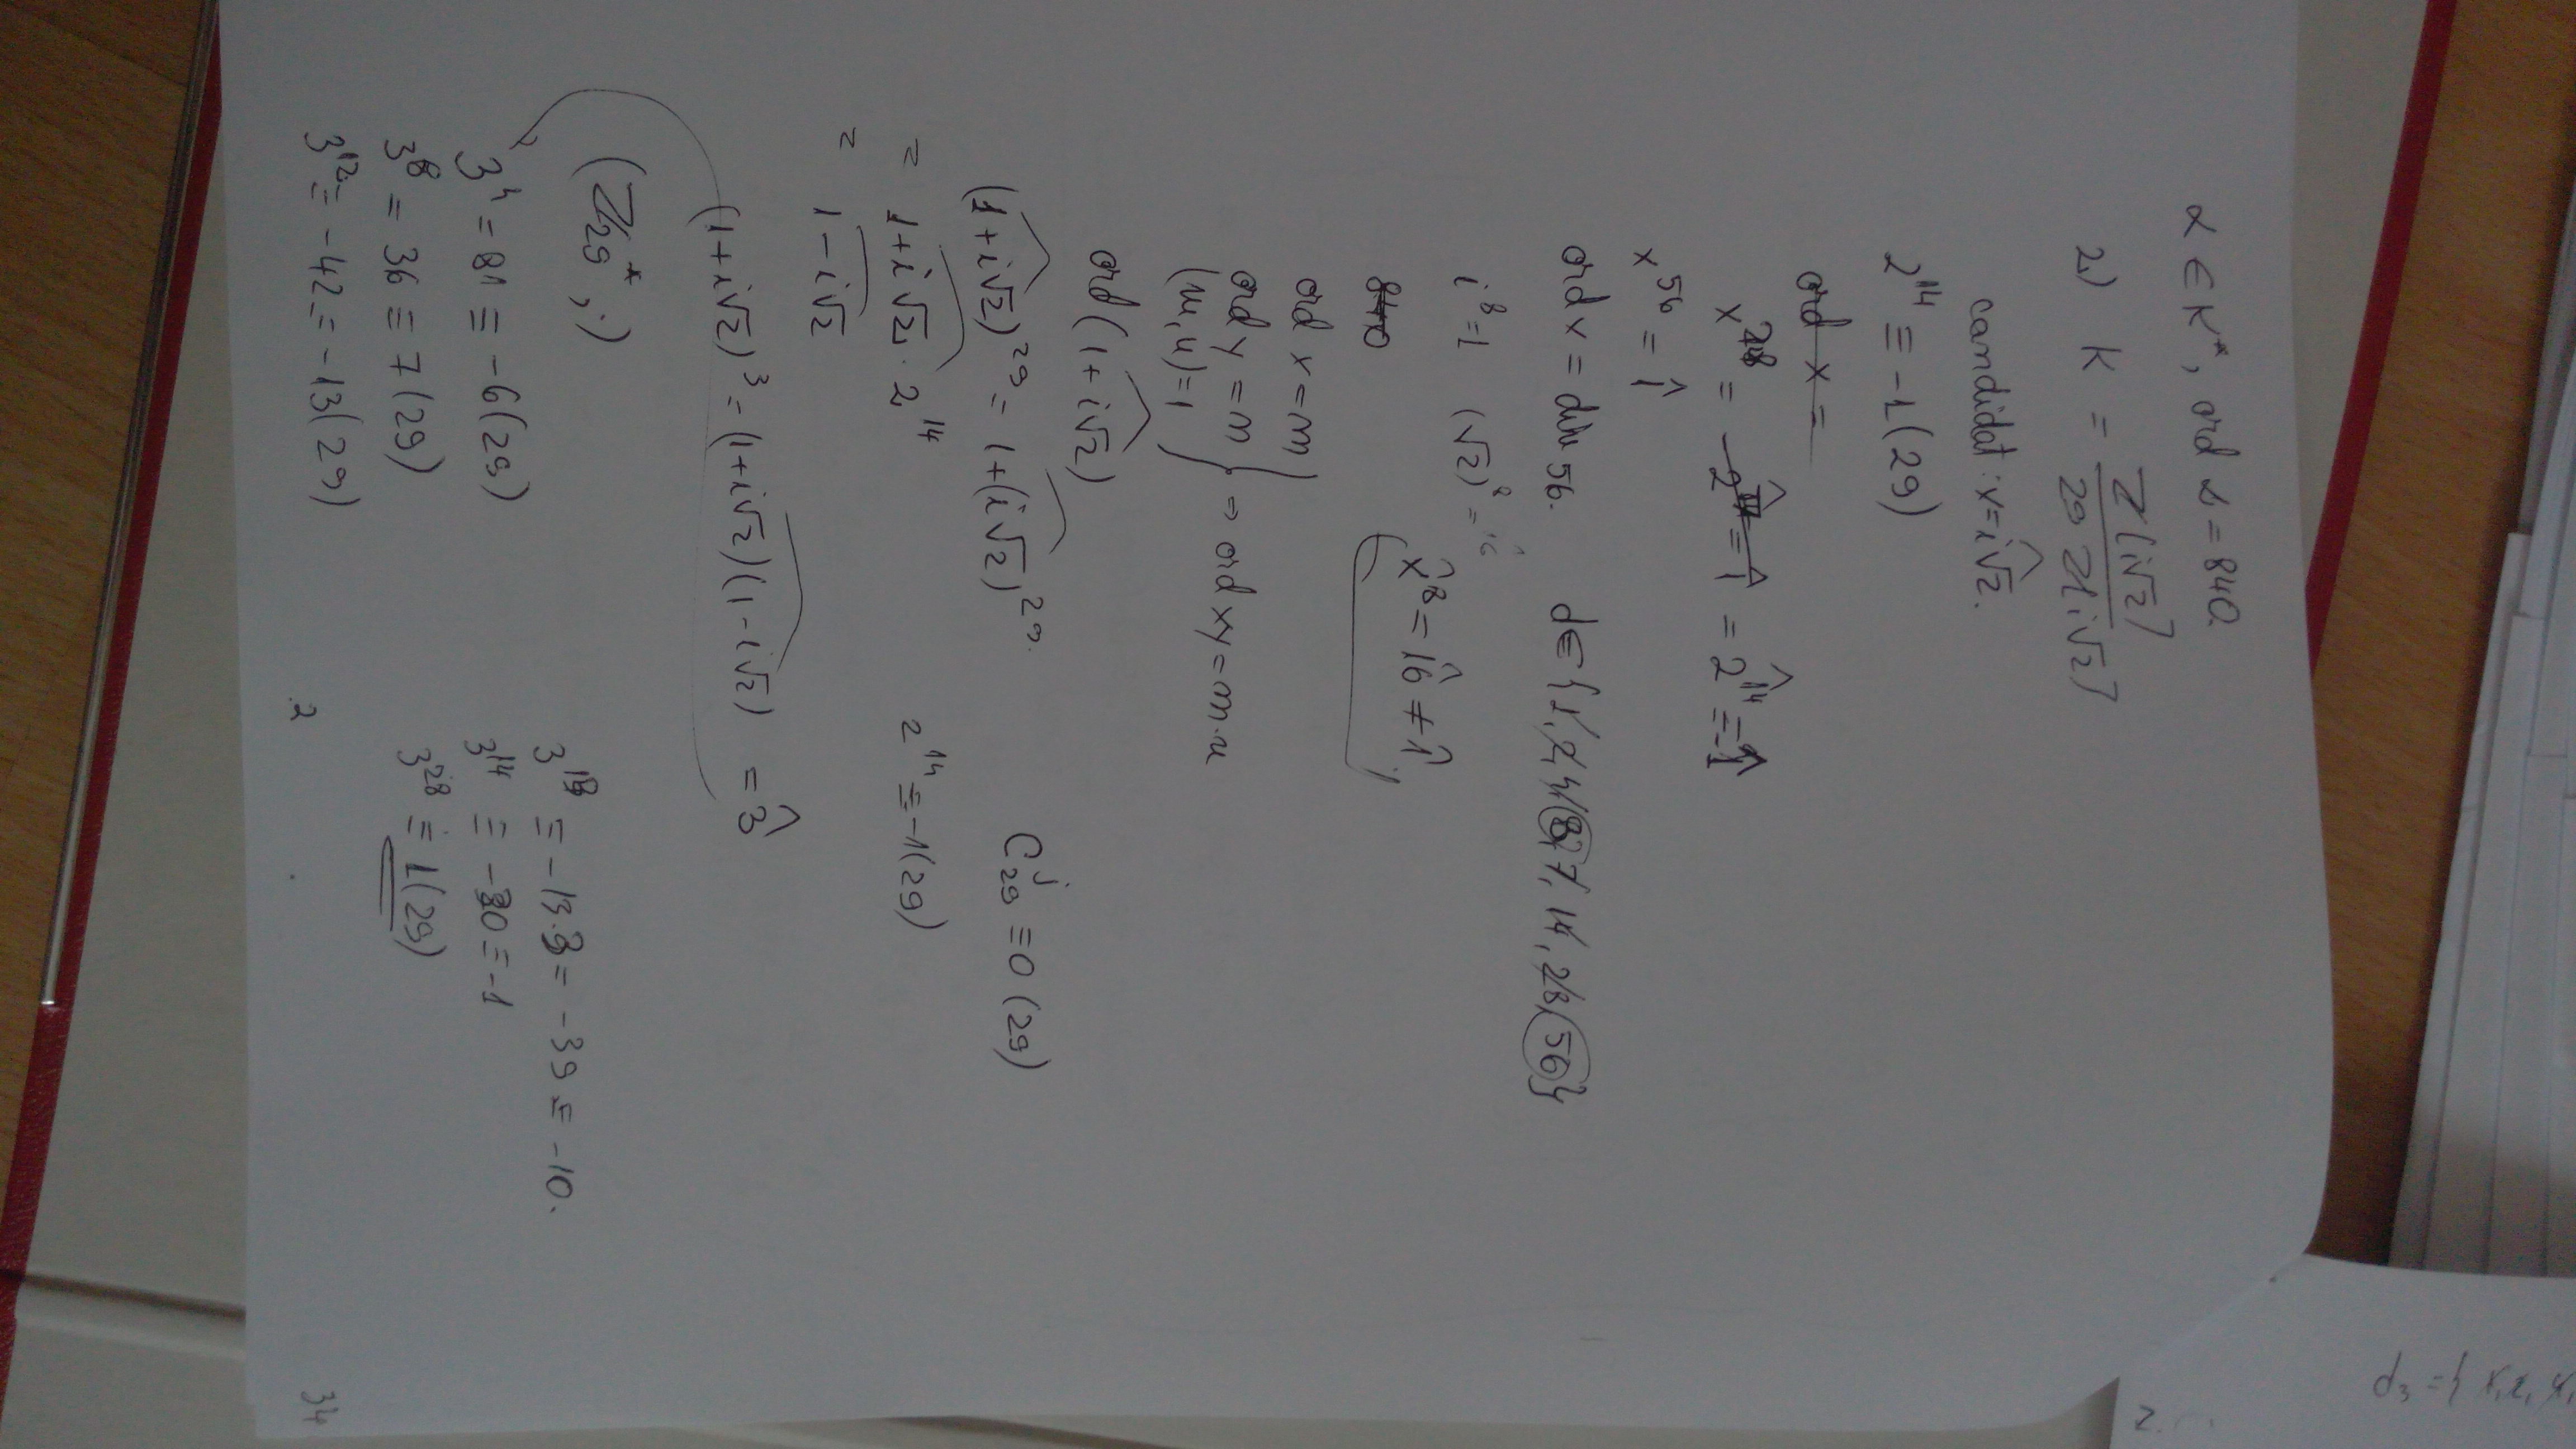 α ∈ K*, ord α = 840.
2) K = Z[i√2] / 29 Z[i√2]
candidat: x = i√2.
2^14 ≡ -1 (29)
ord x =
x^28 = -2^14 = 1 = 2^14 = -1
x^56 = 1
ord x = div 56. d ∈ {1, 2, 4, 8, 7, 14, 28, 56}
i^8 = 1 (√2)^8 = 16
x^8 = 16 ≠ 1
840
ord x = m
ord y = n
(m, n) = 1 } ⇒ ord xy = m·n
ord (1 + i√2)
(1 + i√2)^29 = 1 + (i√2)^29. C_29^j ≡ 0 (29)
= 1 + i√2 · 2^14 2^14 ≡ -1 (29)
= 1 - i√2
(1 + i√2)^3 = (1 + i√2)(1 - i√2) = 3
(Z_29*, ·)
3^4 = 81 ≡ -6 (29)
3^8 = 36 ≡ 7 (29)
3^12 = -42 = -13 (29)
3^13 ≡ -13·3 = -39 = -10.
3^14 ≡ -30 = -1
3^28 ≡ 1 (29)
2
34
d_3 = {
2.